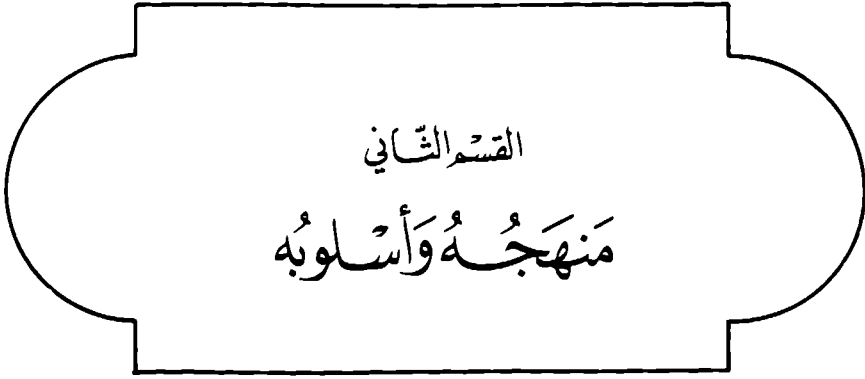 القسْم الثَّاني
مَنهَجُهُ وَأسْلوبُه